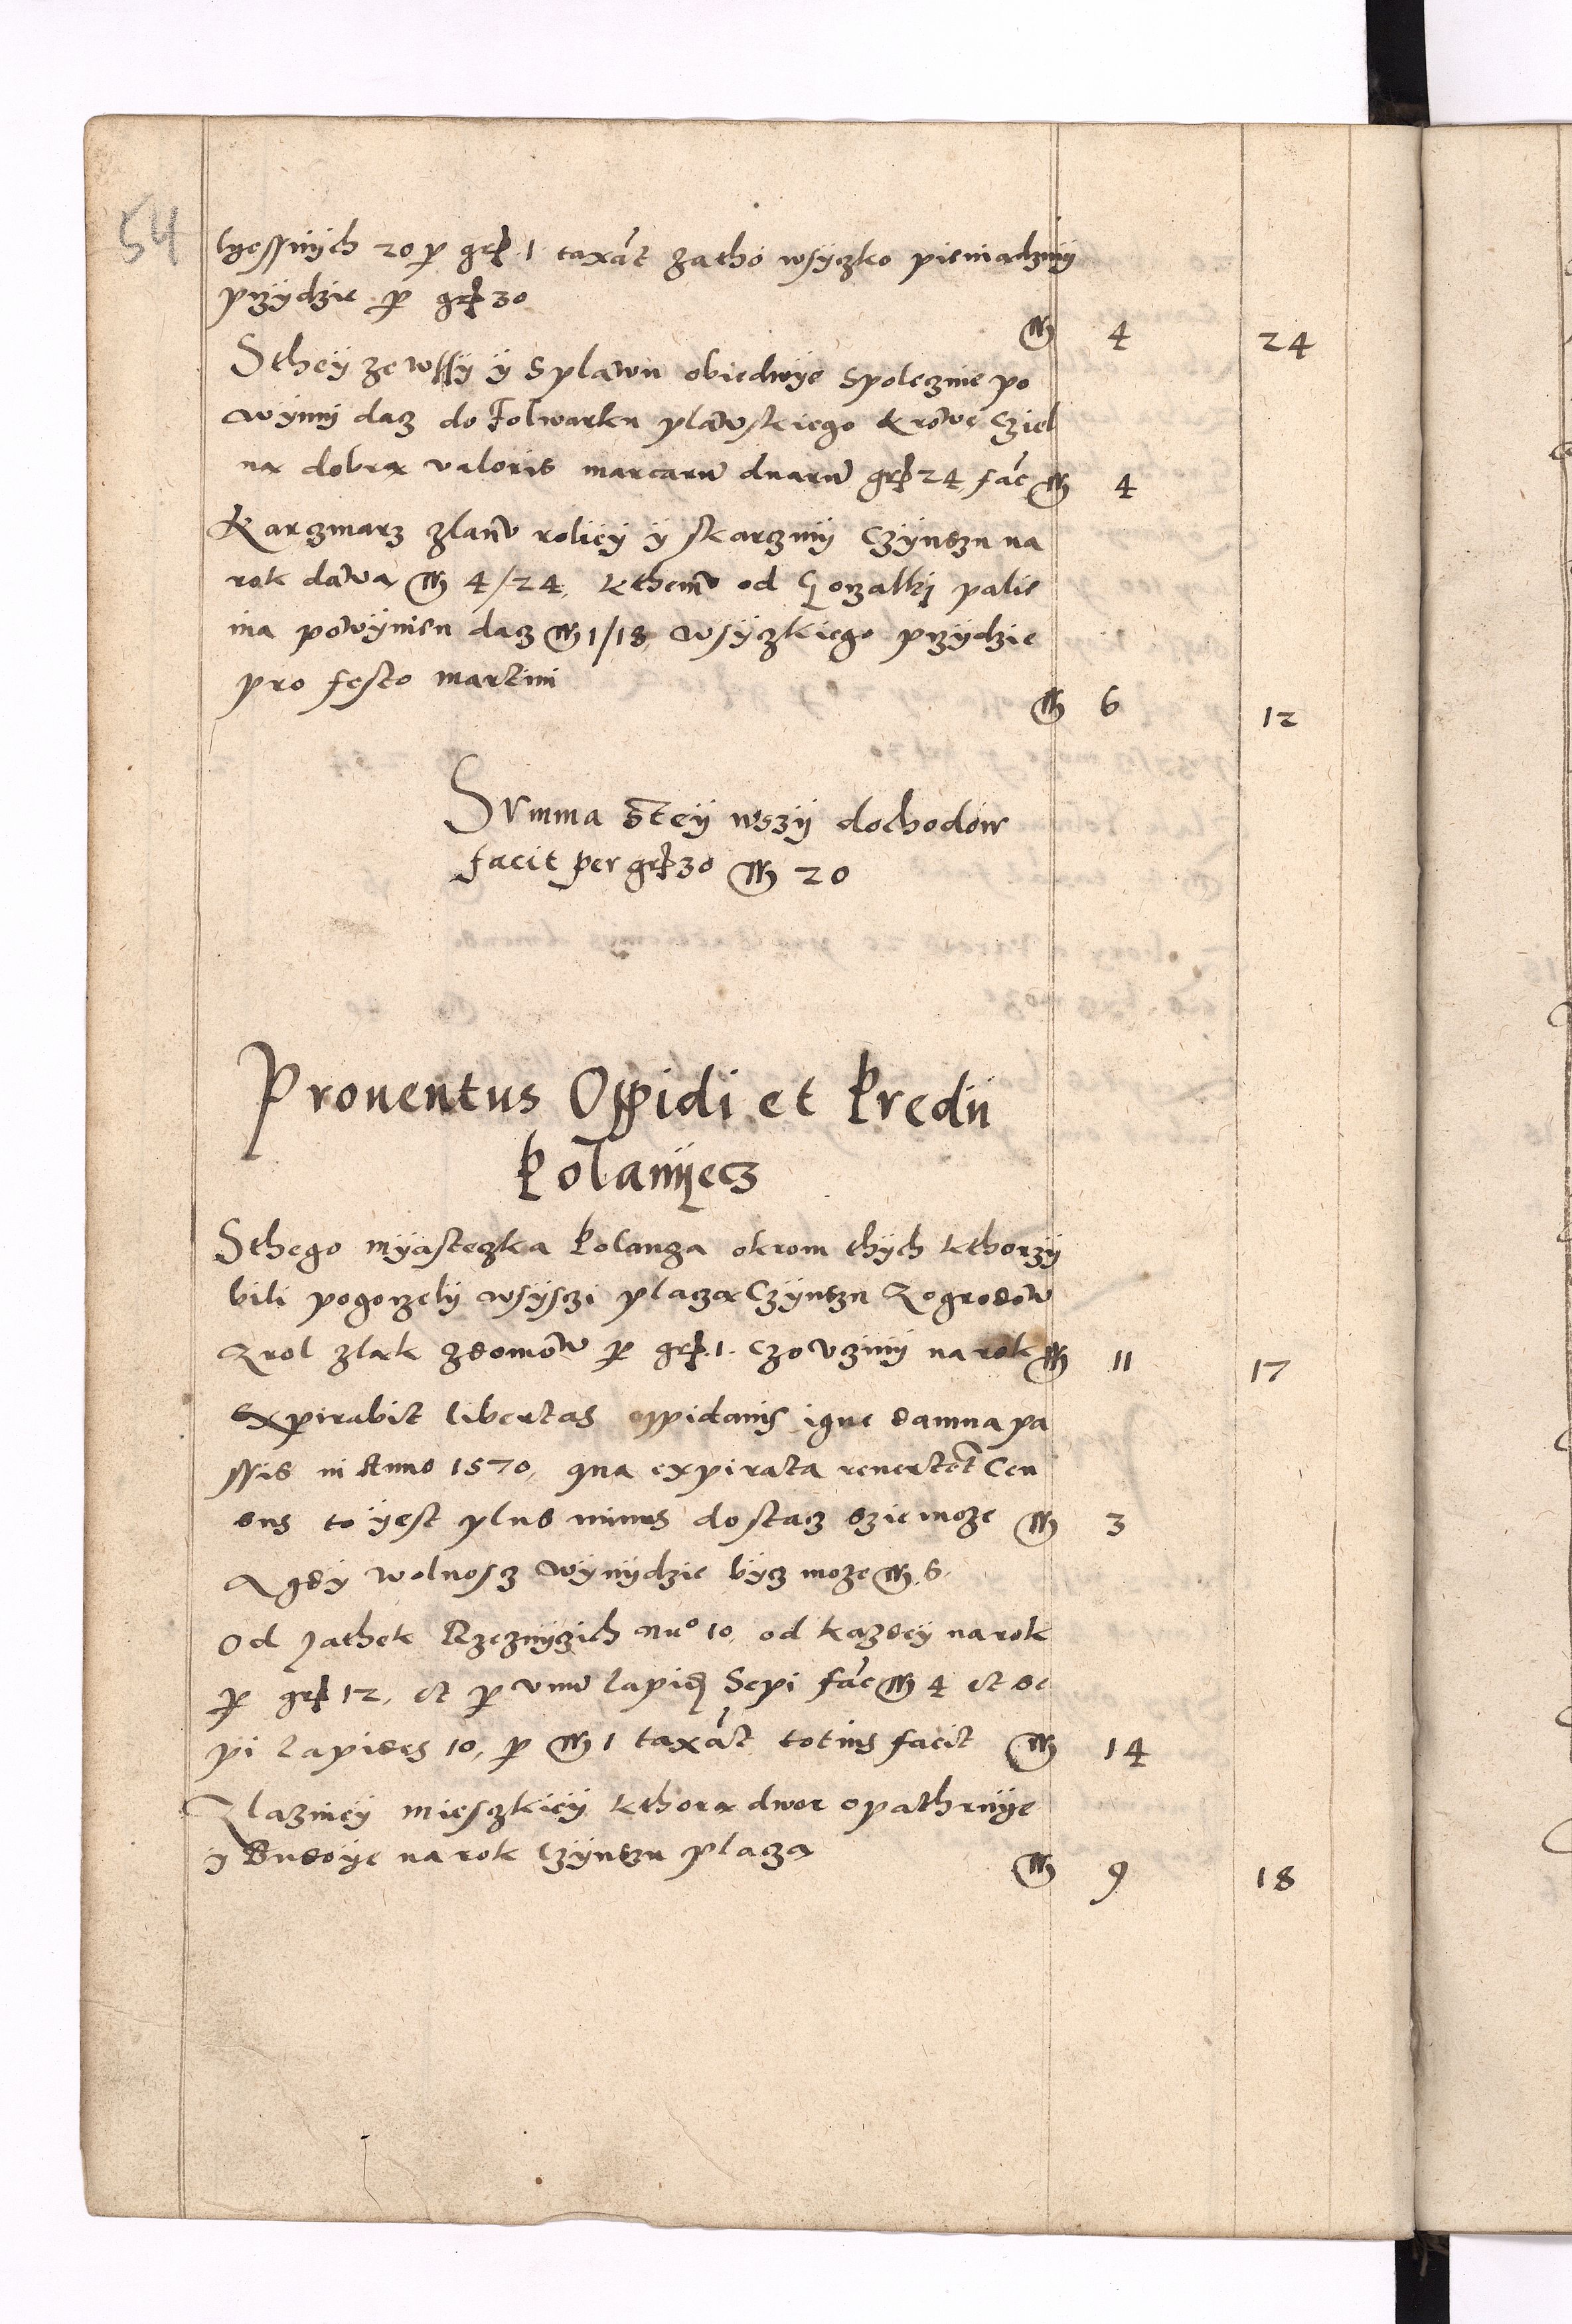 54
lyessnych 20 p̱ grß 1 taxāt zatho wsyczko pieniadzmy
przydzie p̱ grß 30
₥ 4 24
Sthey ze wssy y Splawu obiedwye Spolecznie po
wynny dacz do Folwarku plawskiego krowę Cziel
ną dobrą valoris marcarū duarū grß 24, fac̄ ₥ 4
Karczmarz zlanv roliey y skarczmy Czynszu na
rok dawa ₥ 4/24, kthemv od Gorzalki palie
nia powynien dacz ₥ 1/18, wsyczkiego przydzie
pro festo martini
₥ 6 12
Svmma stey wszy dochodów
facit per grß 30 ₥ 20
Proventus Oppidi et Predii
Polanyecz
Sthego myasteczka Polancza okrom thych kthorzy
bili pogorzely wsyszi placzą Czynszu Zogrodow
Zrol złąk zdomow p̱ grß 1. czo vczini na rok ₥ 11 17
Expirabit libertas oppidanis igne damna pa
ssis in Anno 1570, qua expirata revertet̄ Cen
sus to yest plus minus dostacz szie moze ₥ 3
A gdy wolnosz wynydzie bycz moze ₥ 6.
Od Jathek Rzeznyzich nu⁰ 10, od kazdey na rok
p̱ grß 12, et p̱ vnū lapid Sepi fac̄ ₥ 4 et se
pi lapides 10, p̱ ₥ 1 taxāt totius facit ₥ 14
Zlazniey mieszkiey kthorą dwor opathruye
y Budoye na rok czynszu placzą
₥ 9 18